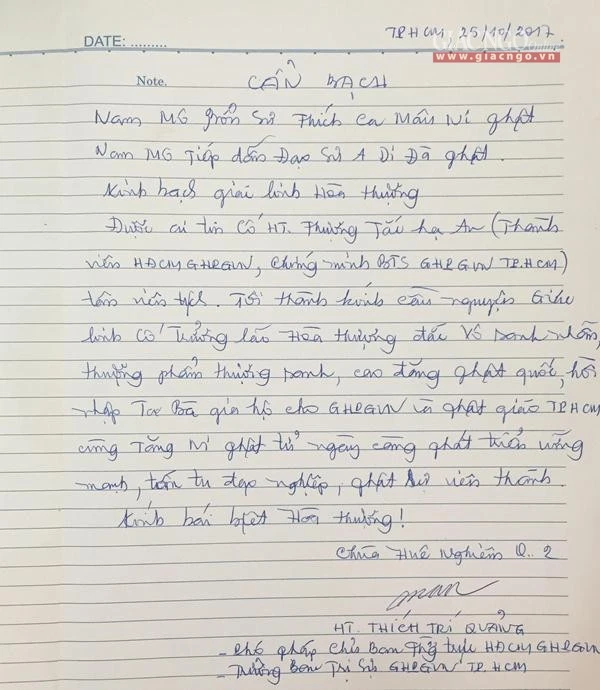 TP.HCM, 25/10/2017
GIÁC NGỘ
www.giacngo.vn
DATE: .........
Note.
CẨN BẠCH
Nam Mô Bổn Sư Thích Ca Mâu Ni Phật
Nam Mô Tiếp dẫn Đạo Sư A Di Đà Phật.
Kính bạch giác linh Hòa thượng
Được cáo tin Cố HT. Thượng Tắc hạ An (Thành
viên HĐCM GHPGVN, chứng minh BTS GHPGVN TP.HCM)
tân viên tịch. Tôi thành kính cầu nguyện Giác
linh Cố Trưởng lão Hòa thượng đắc Vô sanh nhẫn,
thượng phẩm thượng sanh, cao đăng Phật quốc, hồi
nhập Ta Bà gia hộ cho GHPGVN và Phật giáo TP HCM
cùng Tăng Ni Phật tử ngày càng phát triển vững
mạnh, tấn tu đạo nghiệp, Phật sự viên thành.
Kính bái biệt Hòa thượng!
Chùa Huê Nghiêm Q. 2
HT. THÍCH TRÍ QUẢNG
- Phó pháp Chủ Ban Thg trực HĐCM GHPGVN
- Trưởng Ban Trị Sự GHPGVN TP. HCM